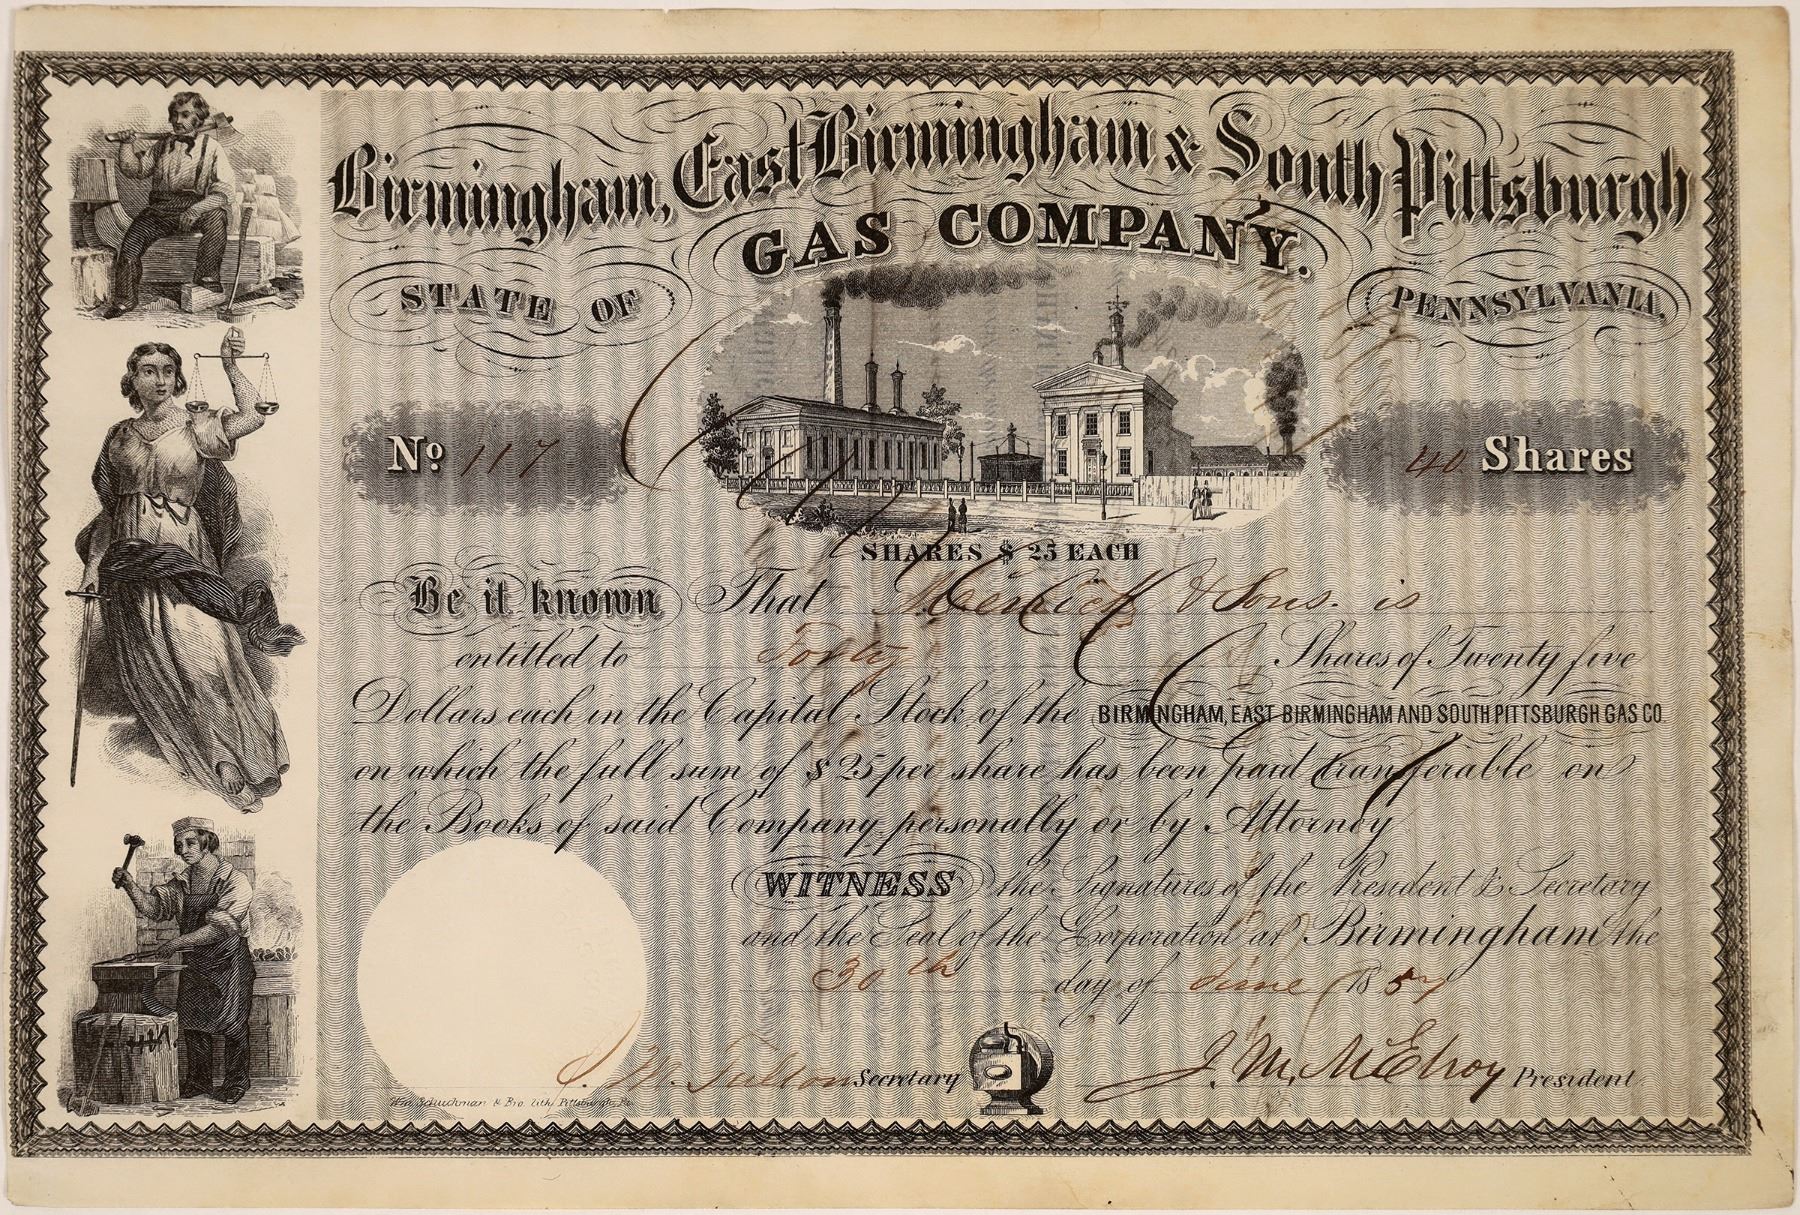 Birmingham, East Birmingham & South Pittsburgh
GAS COMPANY.
STATE OF PENNSYLVANIA.
No 117
40 Shares
SHARES $25 EACH
Be it known That Merrick & Sons. is
entitled to Forty Shares of Twenty five
Dollars each in the Capital Stock of the BIRMINGHAM, EAST BIRMINGHAM AND SOUTH PITTSBURGH GAS CO
on which the full sum of $25 per share has been paid transferable on
the Books of said Company personally or by Attorney
WITNESS the Signatures of the President & Secretary
and the Seal of the Corporation at Birmingham the
30th day of June 1857
J. W. Fulton Secretary
J. M. McElroy President
Wm. Schuchman & Bro. lith. Pittsburgh, Pa.